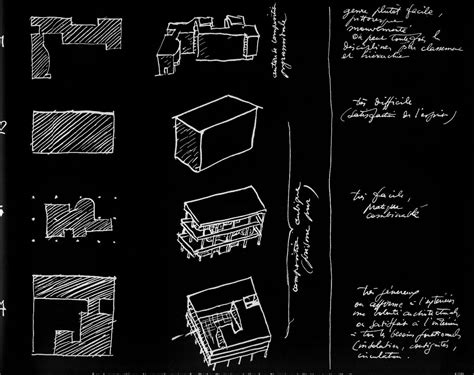 genre plutôt facile,
pittoresque
mouvementé
on peut toutefois le
discipliner par classement
et hiérarchie
très difficile
(satisfaction de l'esprit)
composition cubique
(prisme pur)
très facile,
pratique
combinable
très généreux
on affirme à l'extérieur
une volonté architecturale,
on satisfait à l'intérieur
à tous les besoins fonctionnels
(insolation, contiguités,
circulation